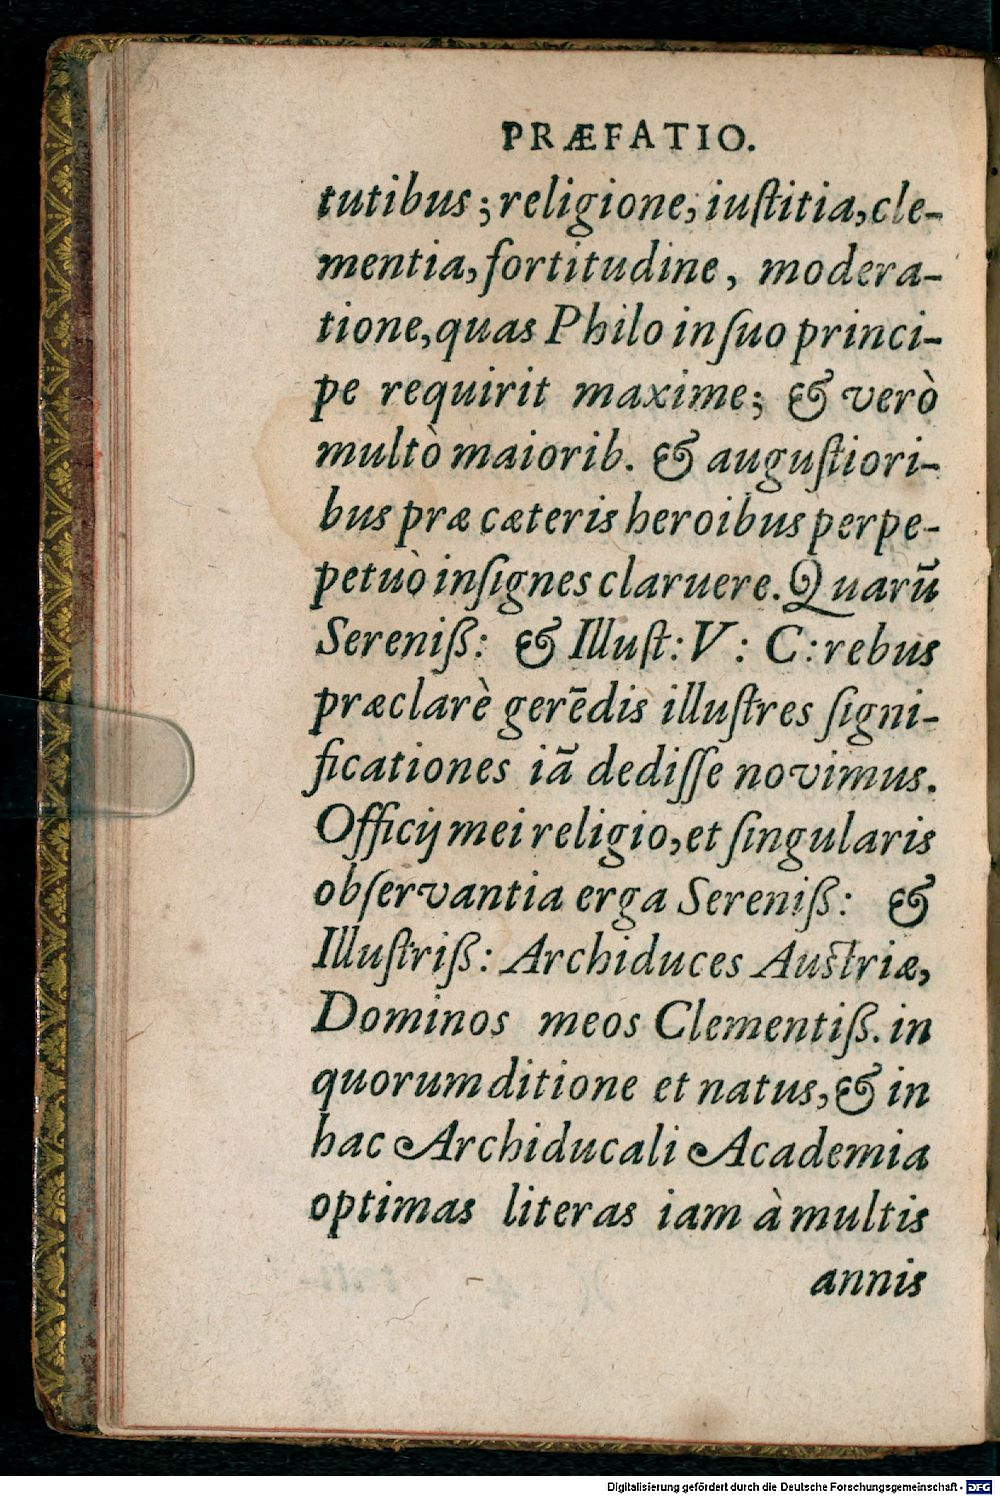 PRÆFATIO.
tutibus; religione, iuſtitia, cle-
mentia, fortitudine, modera-
tione, quas Philo in ſuo princi-
pe requirit maxime; & verò
multò maiorib. & auguſtiori-
bus præ cæteris heroibus perpe-
petuò inſignes claruere. Quarũ
Sereniß: & Illuſt: V: C: rebus
præclarè gerẽdis illuſtres ſigni-
ficationes iã dediſſe novimus.
Officij mei religio, et ſingularis
obſervantia erga Sereniß: &
Illuſtriß: Archiduces Auſtriæ,
Dominos meos Clementiß. in
quorum ditione et natus, & in
hac Archiducali Academia
optimas literas iam à multis
annis
Digitalisierung gefördert durch die Deutsche Forschungsgemeinschaft - DFG